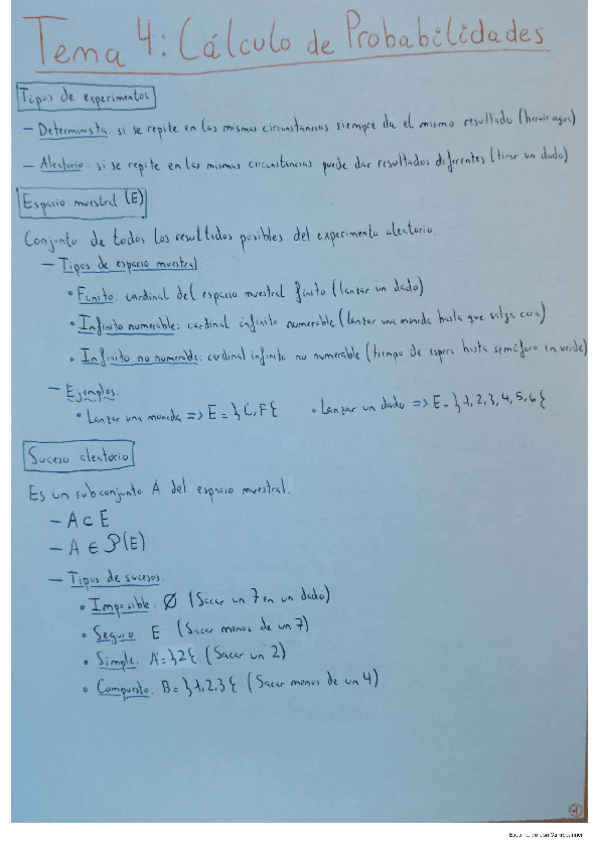 Tema 4: Cálculo de Probabilidades
Tipos de experimentos
— Determinista: si se repite en las mismas circunstancias siempre da el mismo resultado (hervir agua)
— Aleatorio: si se repite en las mismas circunstancias puede dar resultados diferentes (tirar un dado)
Espacio muestral (E)
Conjunto de todos los resultados posibles del experimento aleatorio.
— Tipos de espacio muestral:
• Finito: cardinal del espacio muestral finito (lanzar un dado)
• Infinito numerable: cardinal infinito numerable (lanzar una moneda hasta que salga cara)
• Infinito no numerable: cardinal infinito no numerable (tiempo de espera hasta semáforo en verde)
— Ejemplos:
• Lanzar una moneda => E = }C,F{ • Lanzar un dado => E = }1,2,3,4,5,6{
Suceso aleatorio
Es un subconjunto A del espacio muestral.
— A ⊂ E
— A ∈ P(E)
— Tipos de sucesos:
• Imposible: Ø (Sacar un 7 en un dado)
• Seguro: E (Sacar menos de un 7)
• Simple: A = }2{ (Sacar un 2)
• Compuesto: B = }1,2,3{ (Sacar menos de un 4)
1